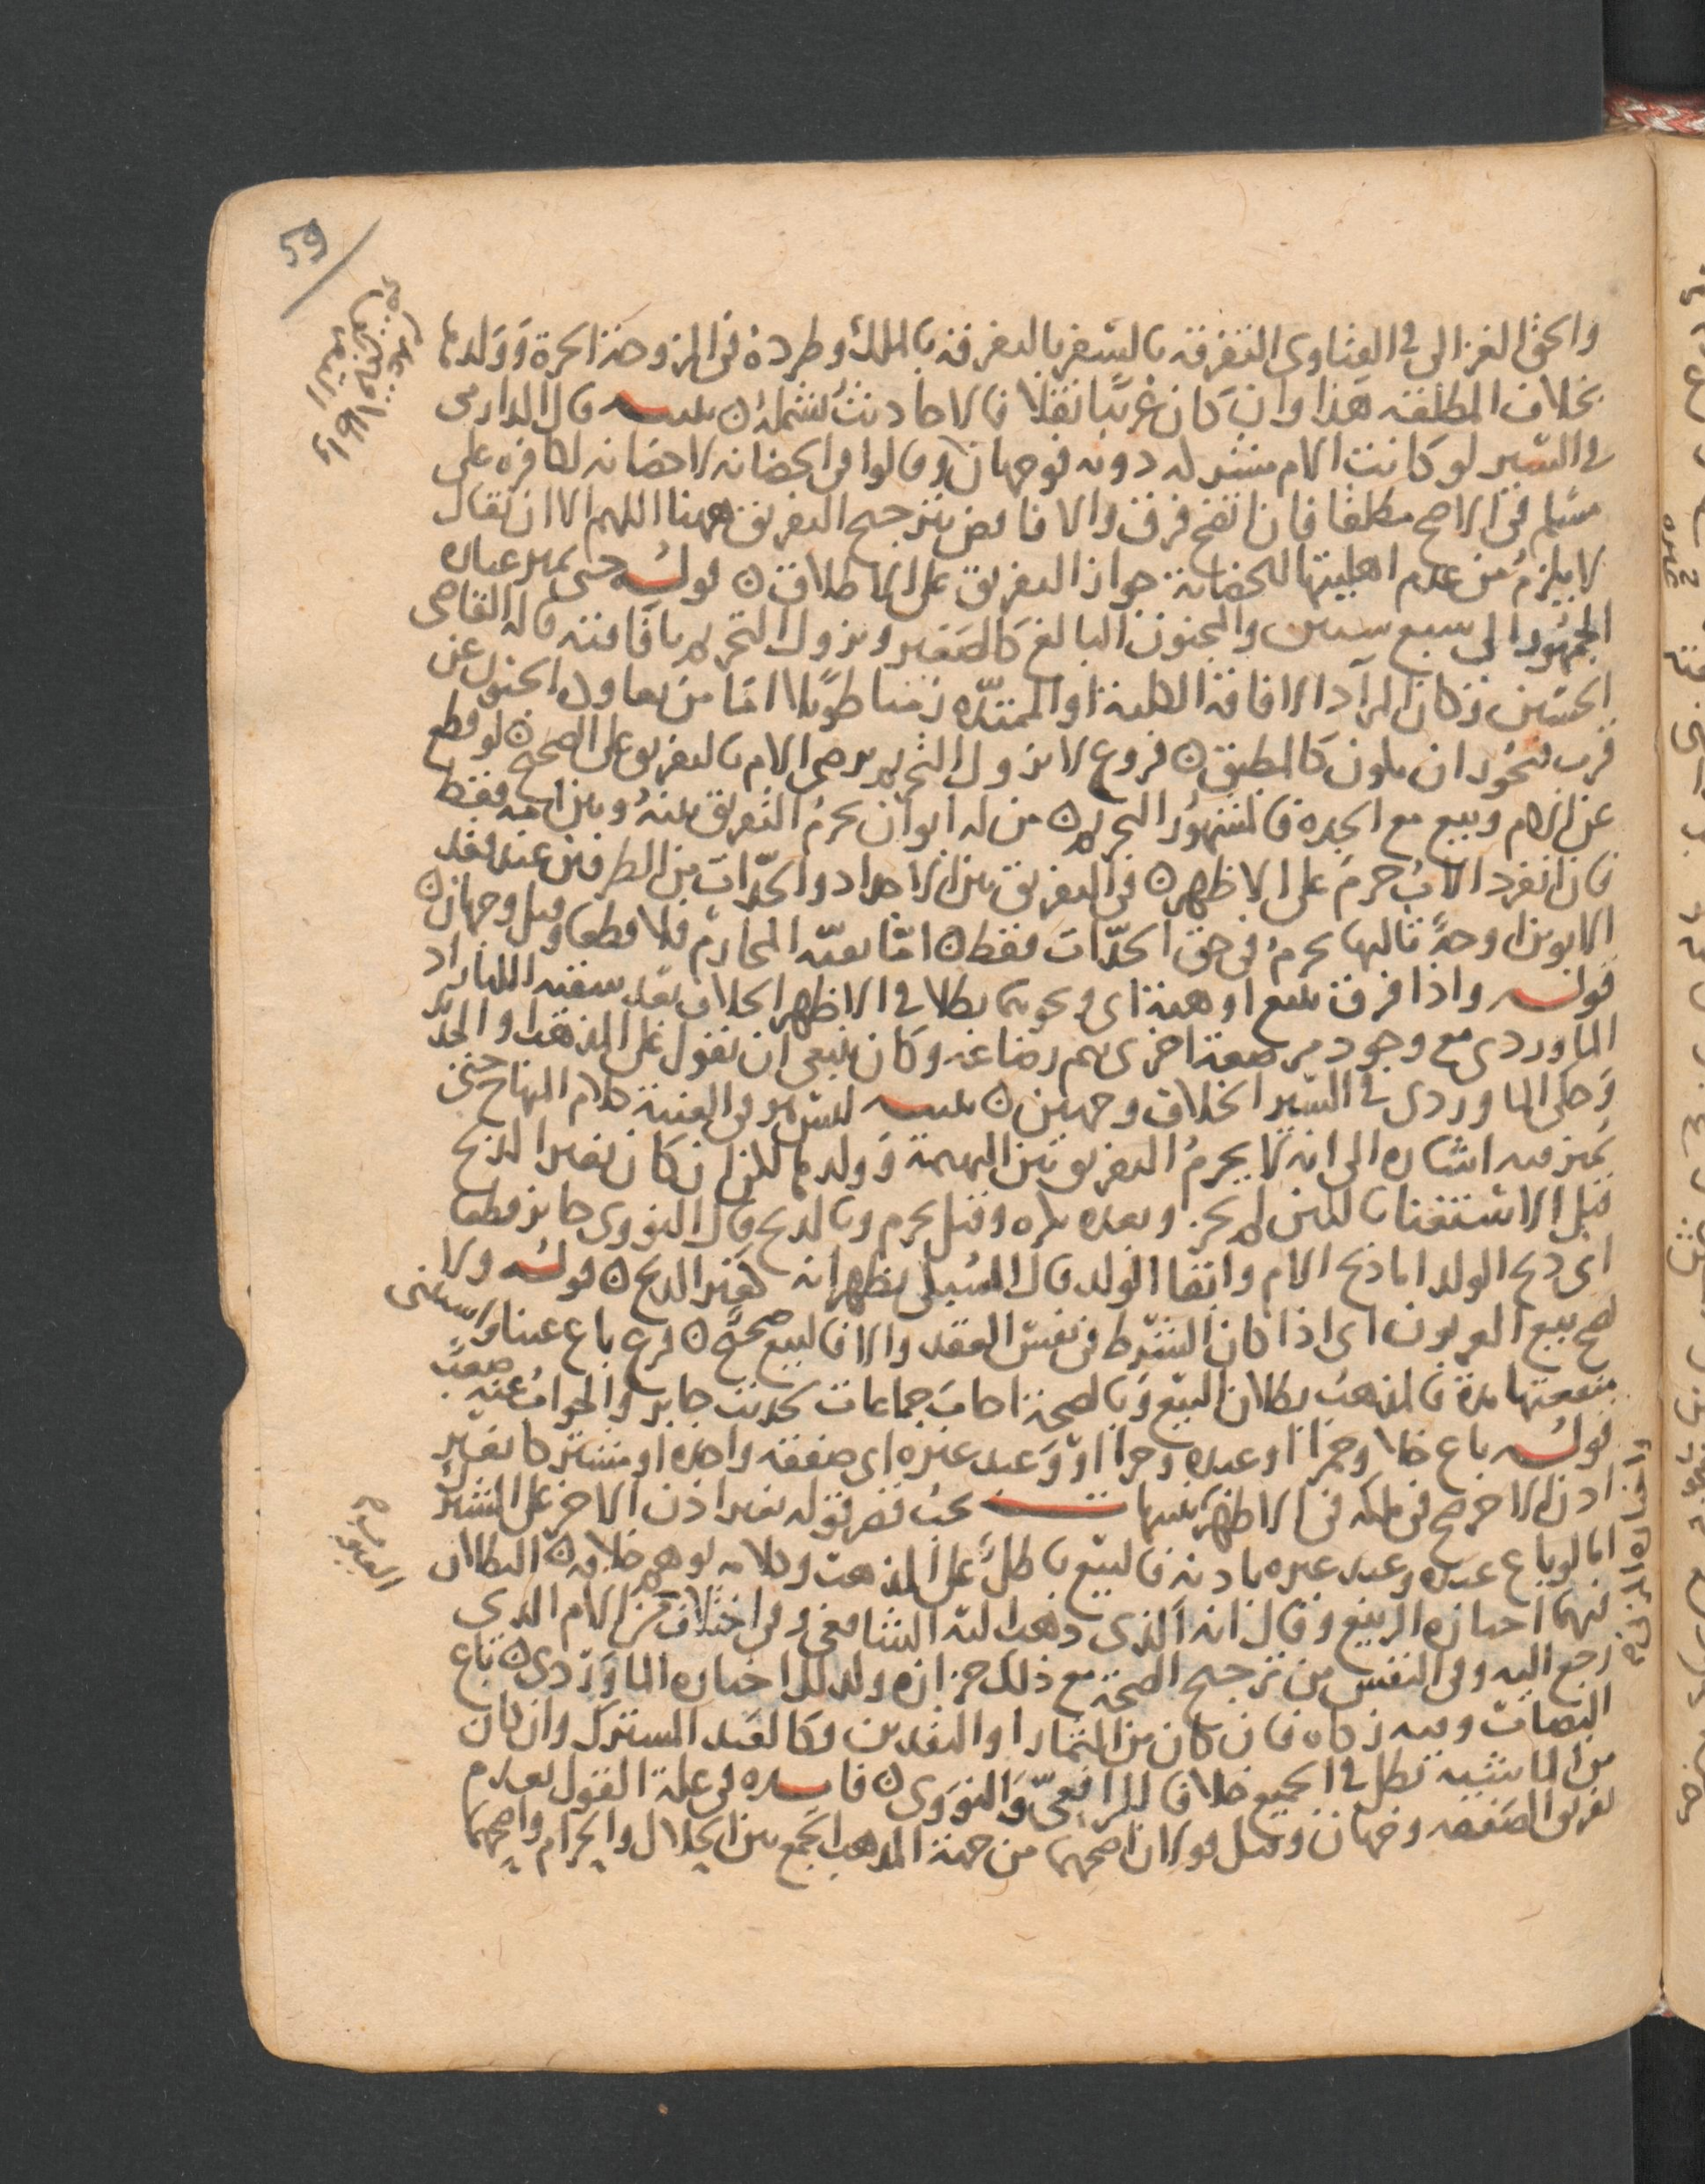 59
والحق الغزالي في الفتاوى التفرقه بالسفر بالتفرقه بالملك وطرده في الزوجة الحرة وولدها
بخلاف المطلقه هذا وان كان غريبا نقلا فالاحاديث تشمله تنبيه قال الدارمي
في السير لو كانت الام مشركه دونه فوجهان وقالوا في الحضانه لا حضانه لكافره على
مسلم في الاصح مطلقا فان اتضح فرق والا فابض بترجيح التفريق ههنا اللهم الا ان يقال
لا يلزم من عدم اهليتها للحضانة جواز التفريق على الاطلاق قوله حتى يميز عباره
الجمهور الى سبع سنين والمجنون البالغ كالصغير ويزول التحريم بافاقته قاله القاضي
الحسين وكان المراد الافاقة الكلية او الممتده زمنا طويلا اما من يعاوده الجنون عن
قرب فيجوز ان يكون كالمطبق فروع لا يزول التحريم برضى الام بالتفريق على الصحيح لو قطع
عن الام وبيع مع الجده فالمشهور التحريم من له ابوان يحرم التفريق بينه وبين امه فقط
فان انفرد الاب حرم على الاظهر في التفريق بين الاجداد والجدات من الطرفين عند فقد
الابوين اوجه ثالثها يحرم في حق الجدات فقط اما بقية المحارم فلا قطعا وقيل وجهان
قوله واذا فرق ببيع او هبة اي ونحوهما بطلا في الاظهر الخلاف بعد سقيه اللبا زاد
الماوردي مع وجود مرضعة اخرى تتم رضاعه وكان ينبغي ان نقول على المذهب او الجديد
وحكى الماوردي في السير الخلاف وجهين تنبيه ليس في الغنية كلام المنهاج حتى
يميز فيه اشاره الى انه لا يحرم التفريق بين البهيمة وولدها لكن ان كان بغير الذبح
قبل الاستغناء باللبن لم يجز وبعده يكره وقيل يحرم وبالذبح قال النووي جائز قطعا
اي ذبح الولد اما ذبح الام وابقا الولد قال السبكي يظهر انه كغير الذبح قوله ولا
يصح بيع العربون اي اذا كان الشرط في نفس العقد والا فالبيع صحيح فرع باع عينا واستثنى
منفعتها مدة فالمذهب بطلان البيع وبالصحة اجاب جماعات لحديث جابر والجواب عنه صعب
قوله باع خلا وخمرا او عبده وحرا او وعبد غيره اي صفقه واحده او مشتركا بغير
اذن الاخر صح في ملكه في الاظهر تنبيهات يجب قصر قوله بغير اذن الاخر على المشترك
اما لو باع عبده وعبد غيره باذنه فالبيع باطل على المذهب وكلامه يوهم خلافه البطلان
فيهما اختاره الربيع وقال انه الذي ذهب اليه الشافعي وفي اختلاف من الام الذي
رجع اليه وفي النفس من ترجيح الصحة مع ذلك حزازه ولذلك اختاره الماوردي باع
النصاب وفيه زكاه فان كان من الثمار او النقدين فكالعبد المشترك وان كان
من الماشيه تطل في الجميع خلافا للرافعي والنووي فايده في علة القول بعدم
تفريق الصفقه وجهان وقيل قولان اصحهما من جهة المذهب الجمع بين الحلال والحرام واصحهما